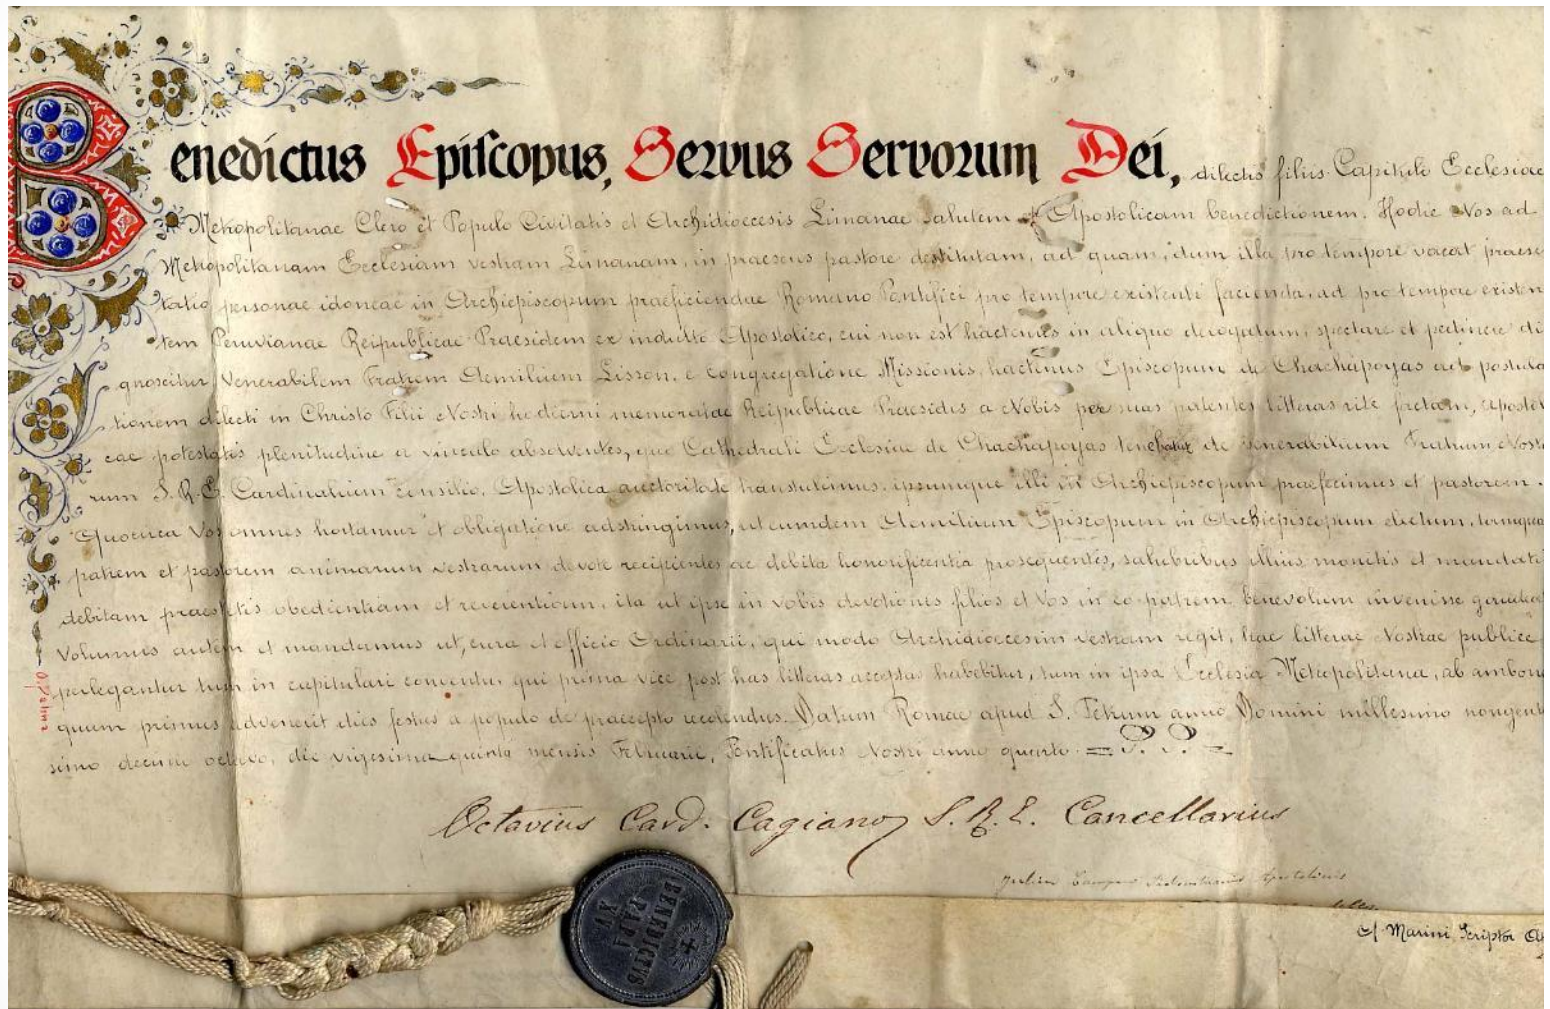 Benedictus Episcopus, Servus Servorum Dei, dilectis filiis Capitulo Ecclesiae
Metropolitanae Clero et Populo Civitatis et Archidioecesis Limanae salutem et Apostolicam benedictionem. Hodie Nos ad
Metropolitanam Ecclesiam vestram Limanam, in praesens pastore destitutam, ad quam, dum illa pro tempore vacat praesen
tatio personae idoneae in Archiepiscopum praeficiendae Romano Pontifici pro tempore existenti facienda, ad pro tempore existen
tem Peruvianae Reipublicae Praesidem ex indulto Apostolico, cui non est hactenus in aliquo derogatum, spectare et pertinere di
gnoscitur Venerabilem Fratrem Aemilium Lisson, e Congregatione Missionis, hactenus Episcopum de Chachapoyas ad postula
tionem dilecti in Christo Filii Nostri hodierni memoratae Reipublicae Praesidis a Nobis per suas patentes litteras rite factam, Apostoli
cae potestatis plenitudine a vinculo absolventes, quo Cathedrali Ecclesiae de Chachapoyas tenebatur de Venerabilium Fratrum Nost
rum S. R. E. Cardinalium consilio, Apostolica auctoritate transtulimus, ipsumque illi in Archiepiscopum praefecimus et pastorem.
Quocirca Vos omnes hortamur et obligatione adstringimus, ut eumdem Aemilium Episcopum in Archiepiscopum electum, tamquam
patrem et pastorem animarum vestrarum devote recipientes ac debita honorificentia prosequentes, salubribus illius monitis et mandati
debitam praestetis obedientiam et reverentiam, ita ut ipse in vobis devotionis filios et vos in eo patrem benevolum invenisse gaudea
Volumus autem et mandamus ut, cura et officio Ordinarii, qui modo Archidioecesim vestram regit, hae litterae Nostrae publice
perlegantur tum in capitulari conventu, qui prima vice post has litteras acceptas habebitur, tum in ipsa Ecclesia Metropolitana, ab ambone
quum primus advenerit dies festus a populo de praecepto recolendus. Datum Romae apud S. Petrum anno Domini millesimo nongente
simo decimo octavo, die vigesima quinta mensis Februarii, Pontificatus Nostri anno quarto.
Octavius Card. Cagiano, S. R. E. Cancellarius
Marini Scriptor
BENEDICTUS
PAPA
XV